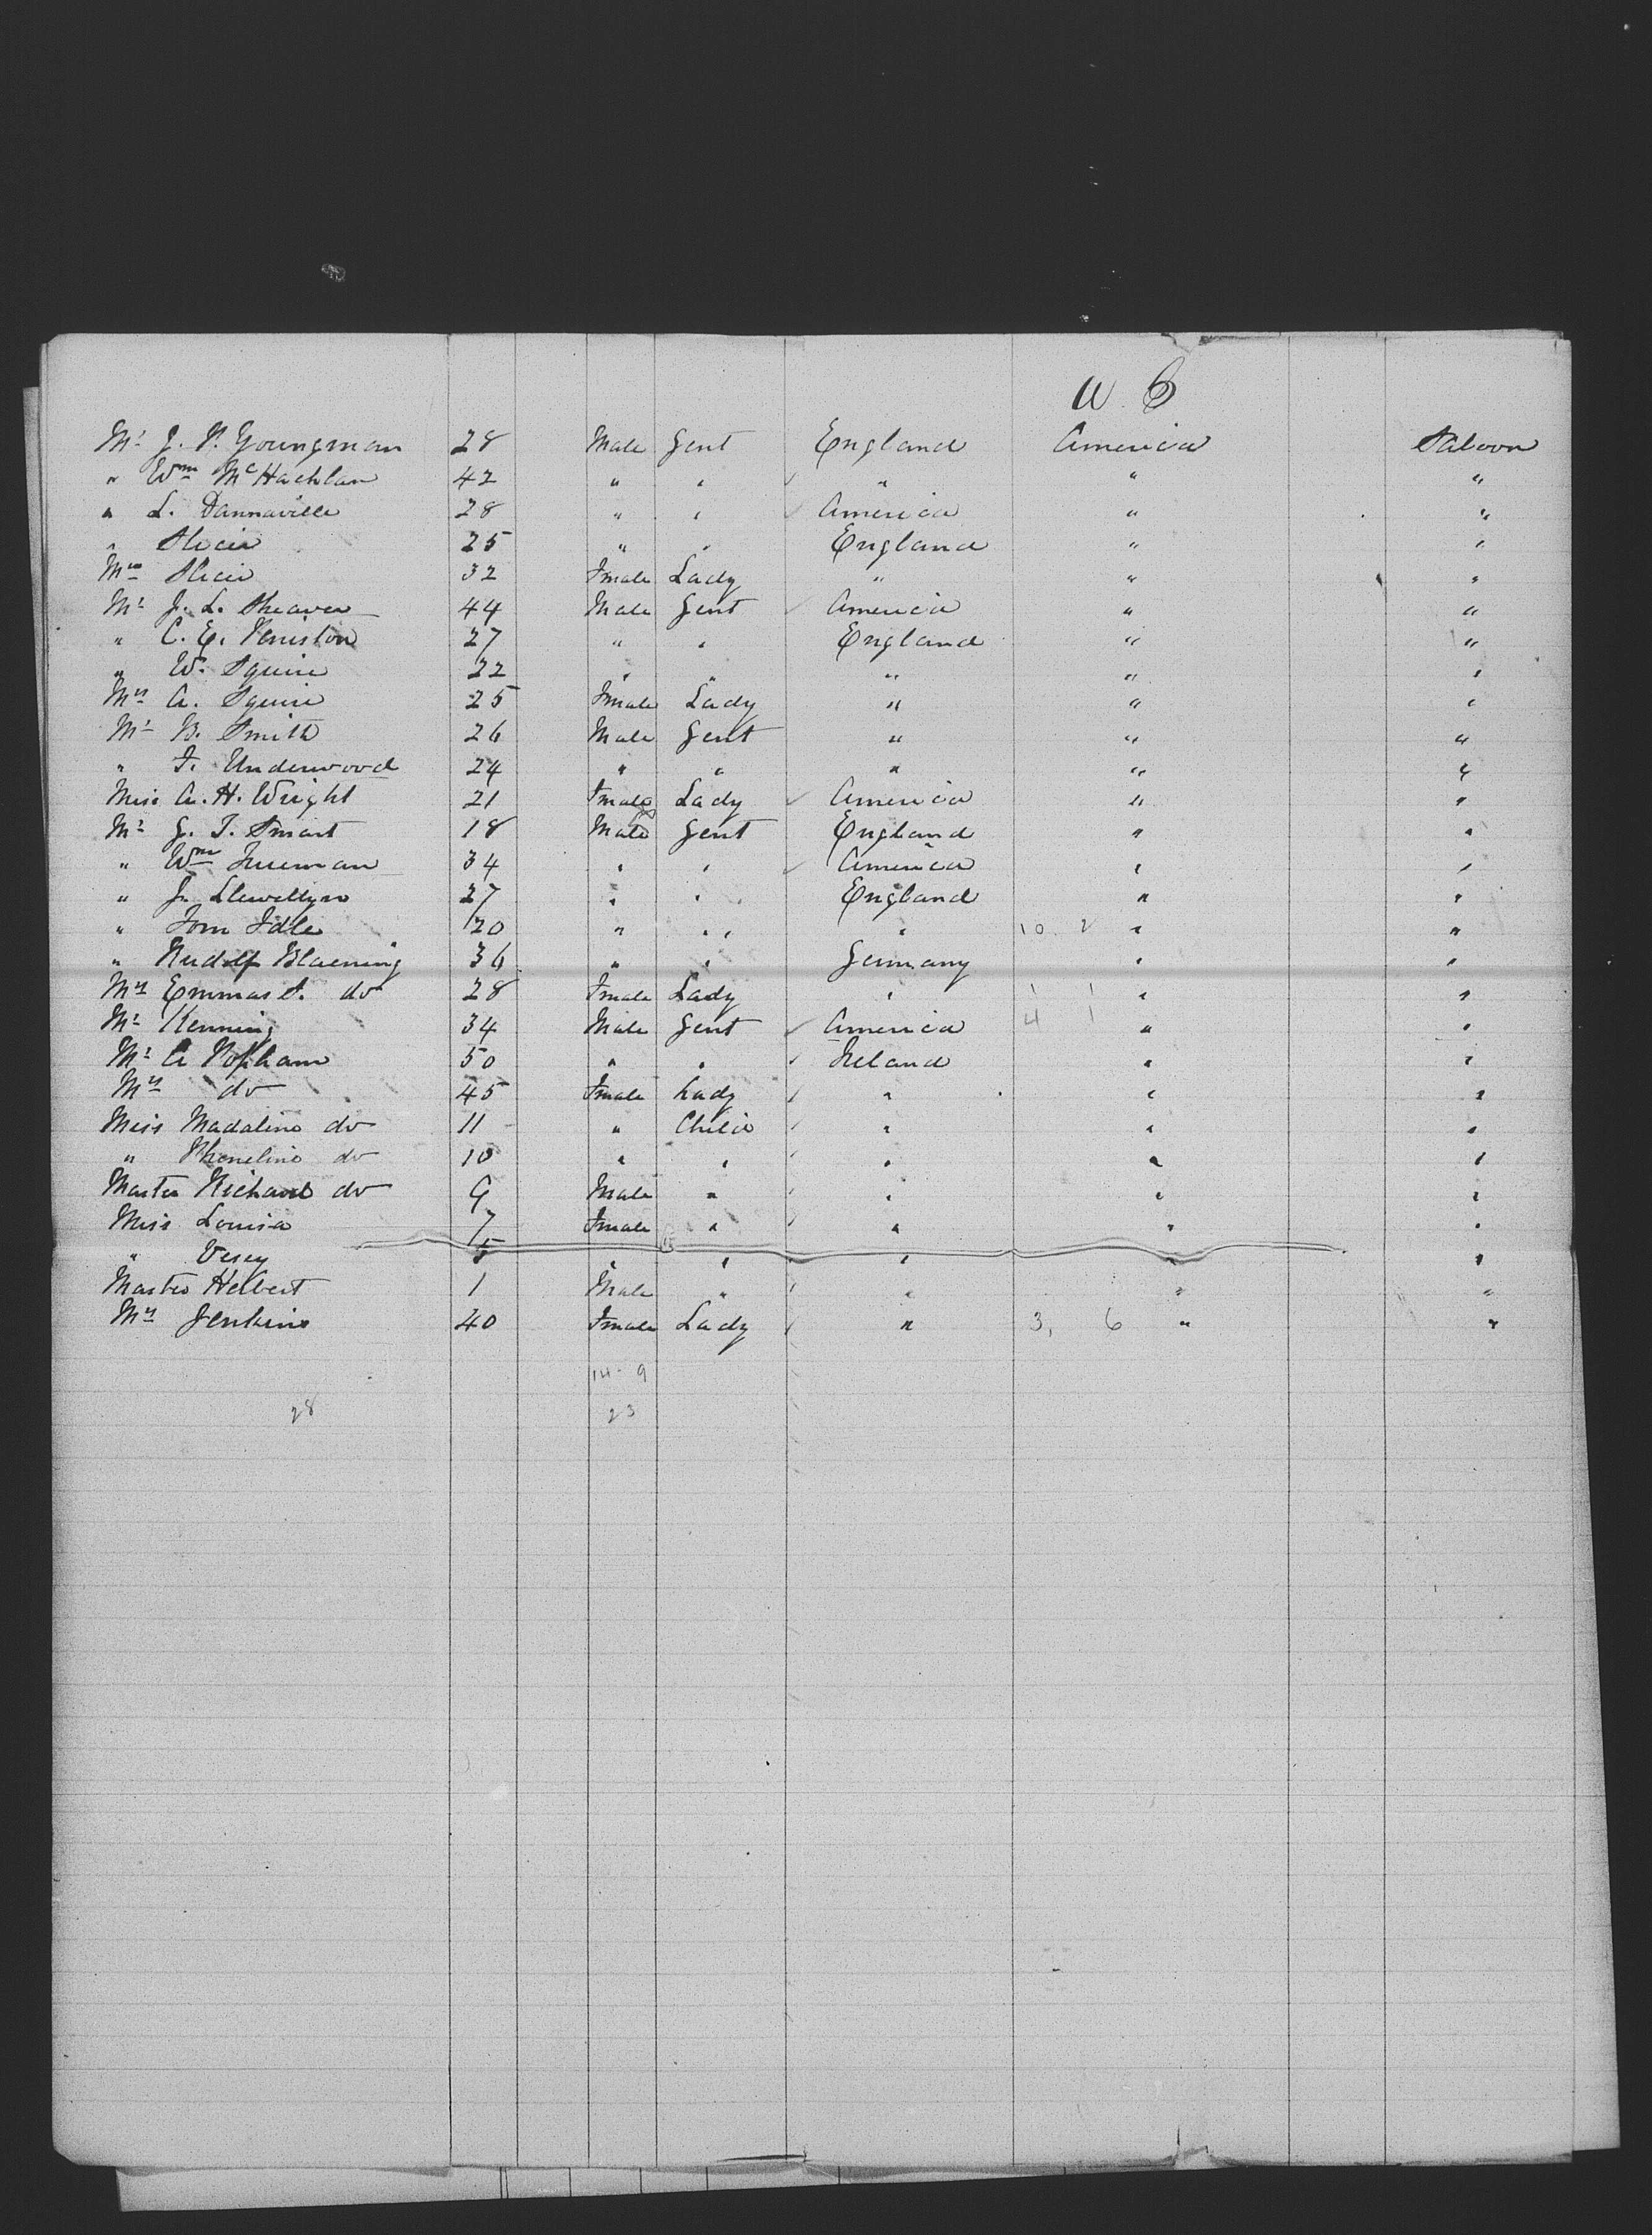 W. C
Mr J. P. Youngman 28 Male Gent England America Saloon
" Wm McHachlan 42 " " " " "
" L. Dannaville 28 " " America " "
" Slicer 25 " " England " "
Mrs Slicer 32 Fmale Lady " " "
Mr J. L. Sheaver 44 Male Gent America " "
" C. E. Peniston 27 " " England " "
" W. Squire 22 " " " " "
Mrs A. Squire 25 Fmale Lady " " "
Mr B. Smith 26 Male Gent " " "
" F. Underwood 24 " " " " "
Miss A. H. Wright 21 Fmale Lady America " "
Mr G. T. Smart 18 Male Gent England " "
" Wm Trueman 34 " " America " "
" J. Llewellyn 27 " " England " "
" Tom Idle 20 " " " 10 2 " "
" Rudolf Blaening 36 " " Germany " "
Mrs Emma S. do 28 Fmale Lady " 1 1 " "
Mr Kenning 34 Male Gent America 4 1 " "
Mr A Popham 50 " " Ireland " "
Mrs do 45 Fmale Lady " " "
Miss Madaline do 11 " Child " " "
" do 10 " " " " "
Master Richard do 9 Male " " " "
Miss Louisa 7 Fmale " " " "
" Vesey 5 " " " " "
Master Herbert 1 Male " " " "
Mrs Jenkins 40 Fmale Lady " 3, 6 " "
14 - 9
28 23